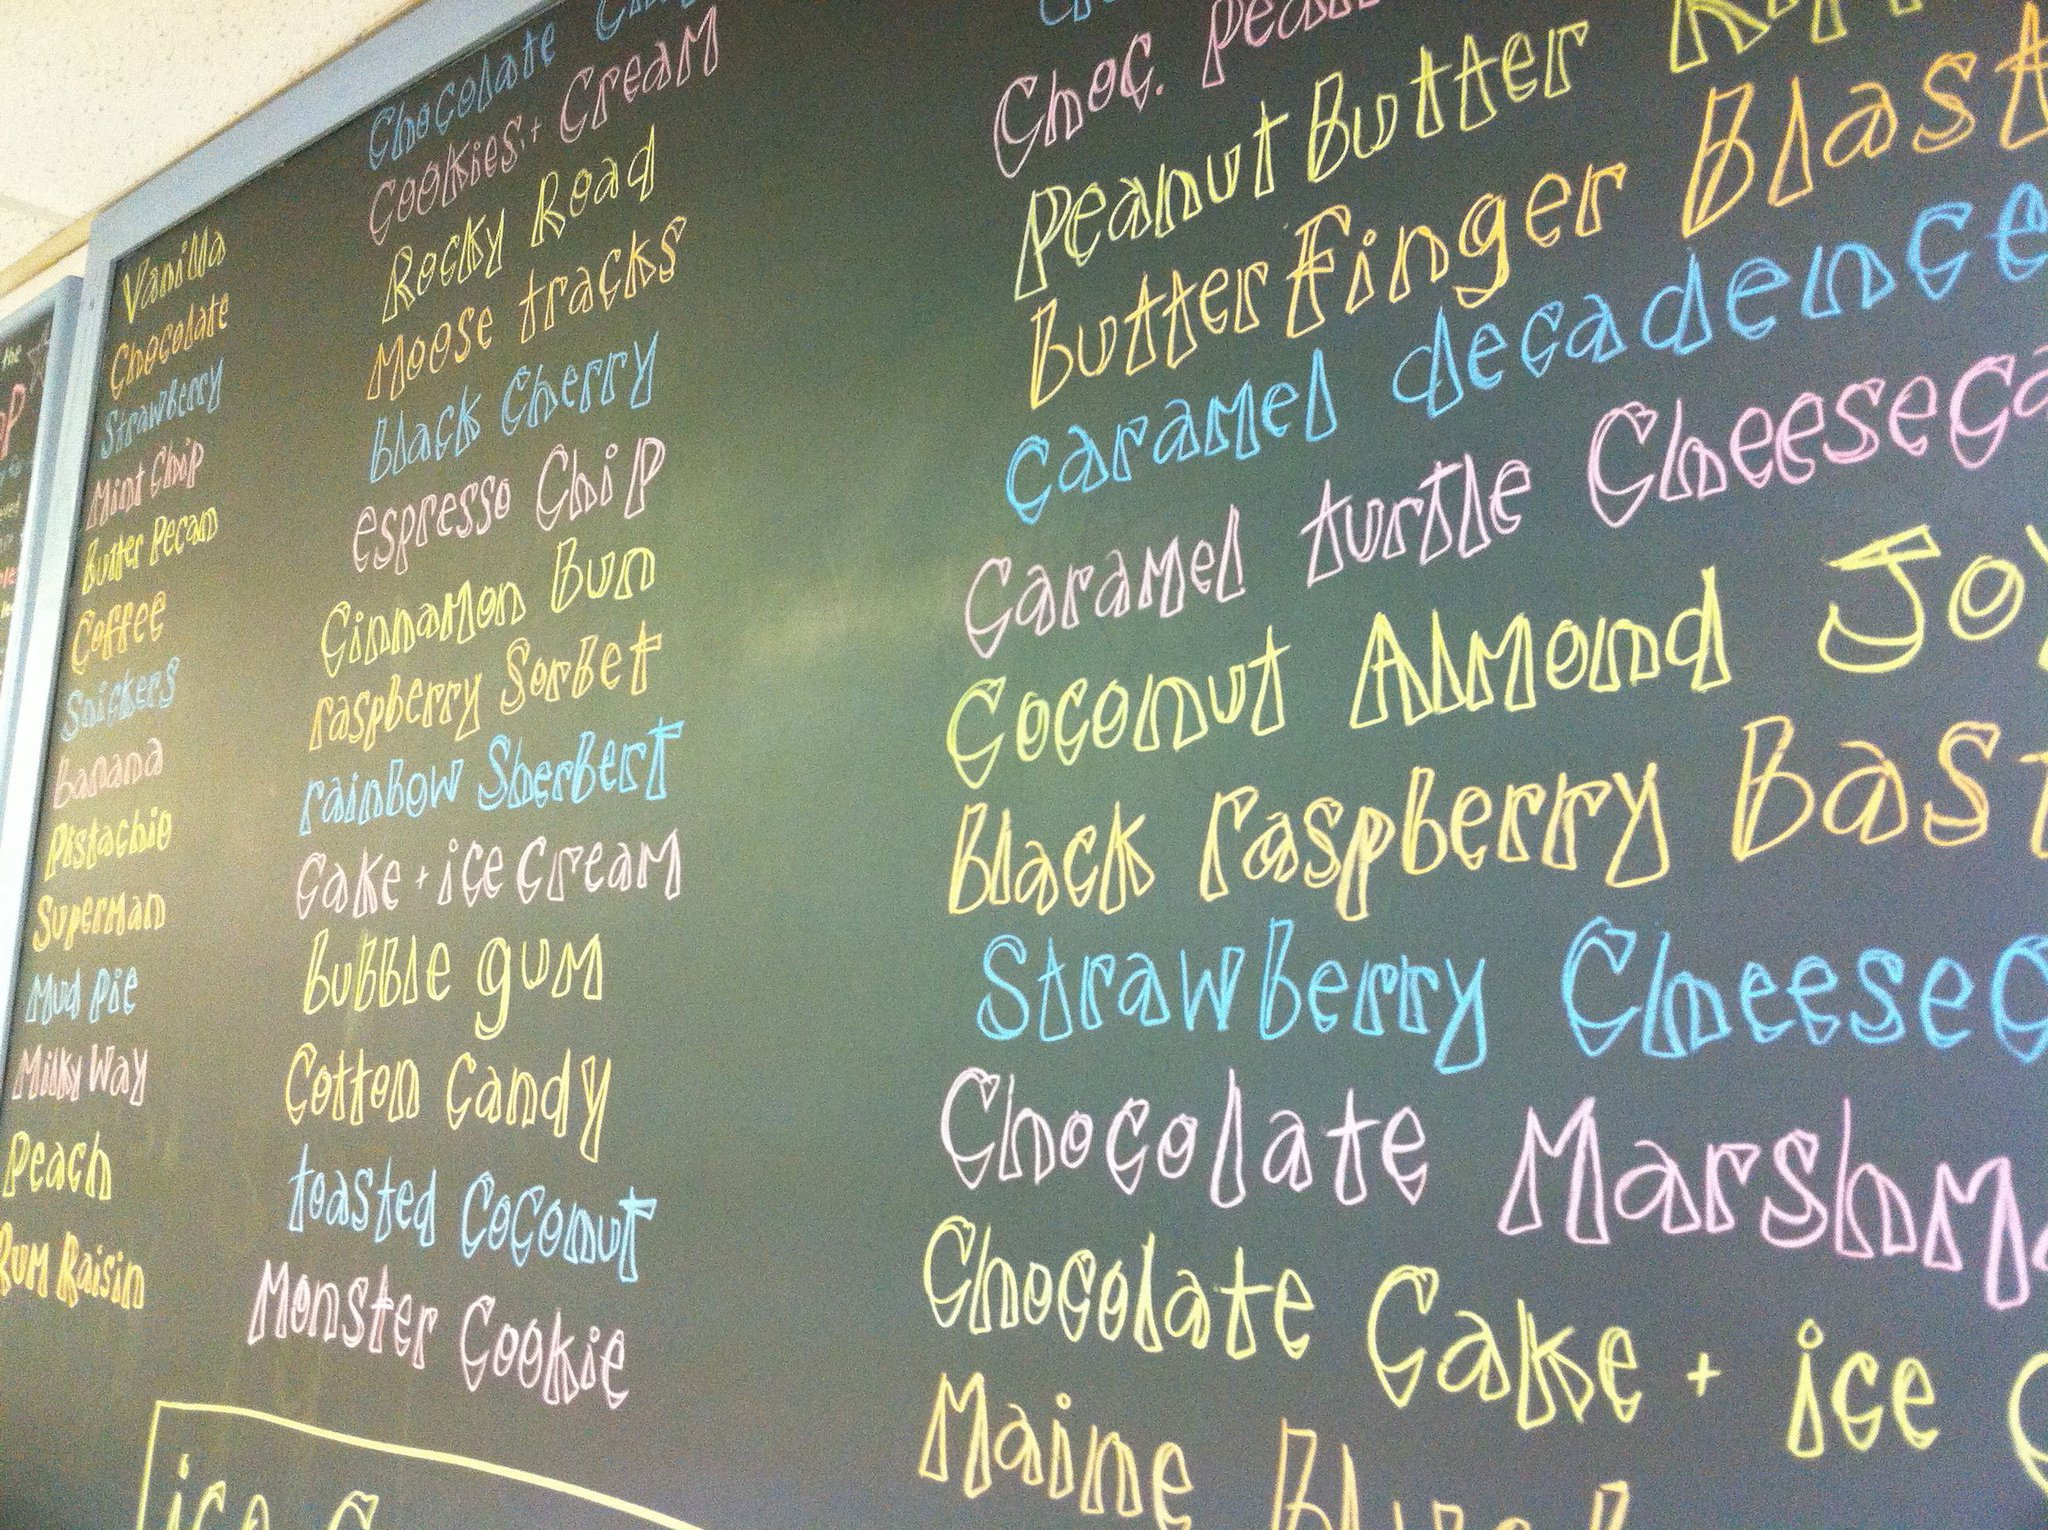 Vanilla
Chocolate
Strawberry
Mint Chip
Butter Pecan
Coffee
Snickers
banana
Pistachio
Superman
Mud Pie
Milky Way
Peach
Rum Raisin
Chocolate
Cookies + Cream
Rocky Road
Moose tracks
Black Cherry
espresso Chip
Cinnamon Bun
raspberry Sorbet
rainbow Sherbert
Cake + ice cream
bubble gum
Cotton Candy
toasted Coconut
Monster Cookie
ice
Choc.
Peanut Butter
ButterFinger Blast
Caramel decadence
Caramel turtle Cheeseca
Coconut Almond Joy
Black raspberry Bast
Strawberry Cheesec
Chocolate Marshm
Chocolate Cake + ice C
Maine
the